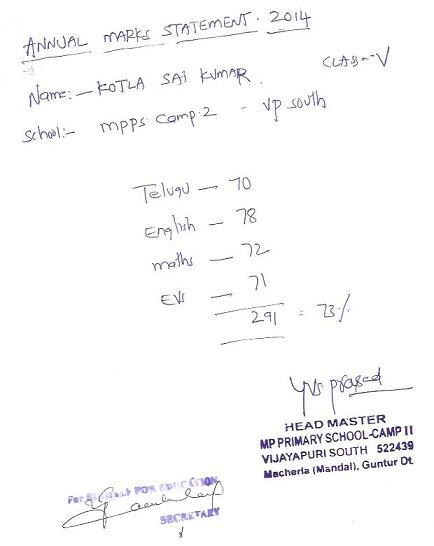 ANNUAL MARKS STATEMENT. 2014
CLASS - V
Name:- KOTLA SAI KUMAR.
School:- MPPS. Camp.2 - VP South
Telugu — 70
English — 78
maths — 72
EVS — 71
291 = 73%
YVS Prasad
HEAD MASTER
MP PRIMARY SCHOOL-CAMP II
VIJAYAPURI SOUTH 522439
Macherla (Mandal), Guntur Dt.
For FOR EDUCATION
SECRETARY